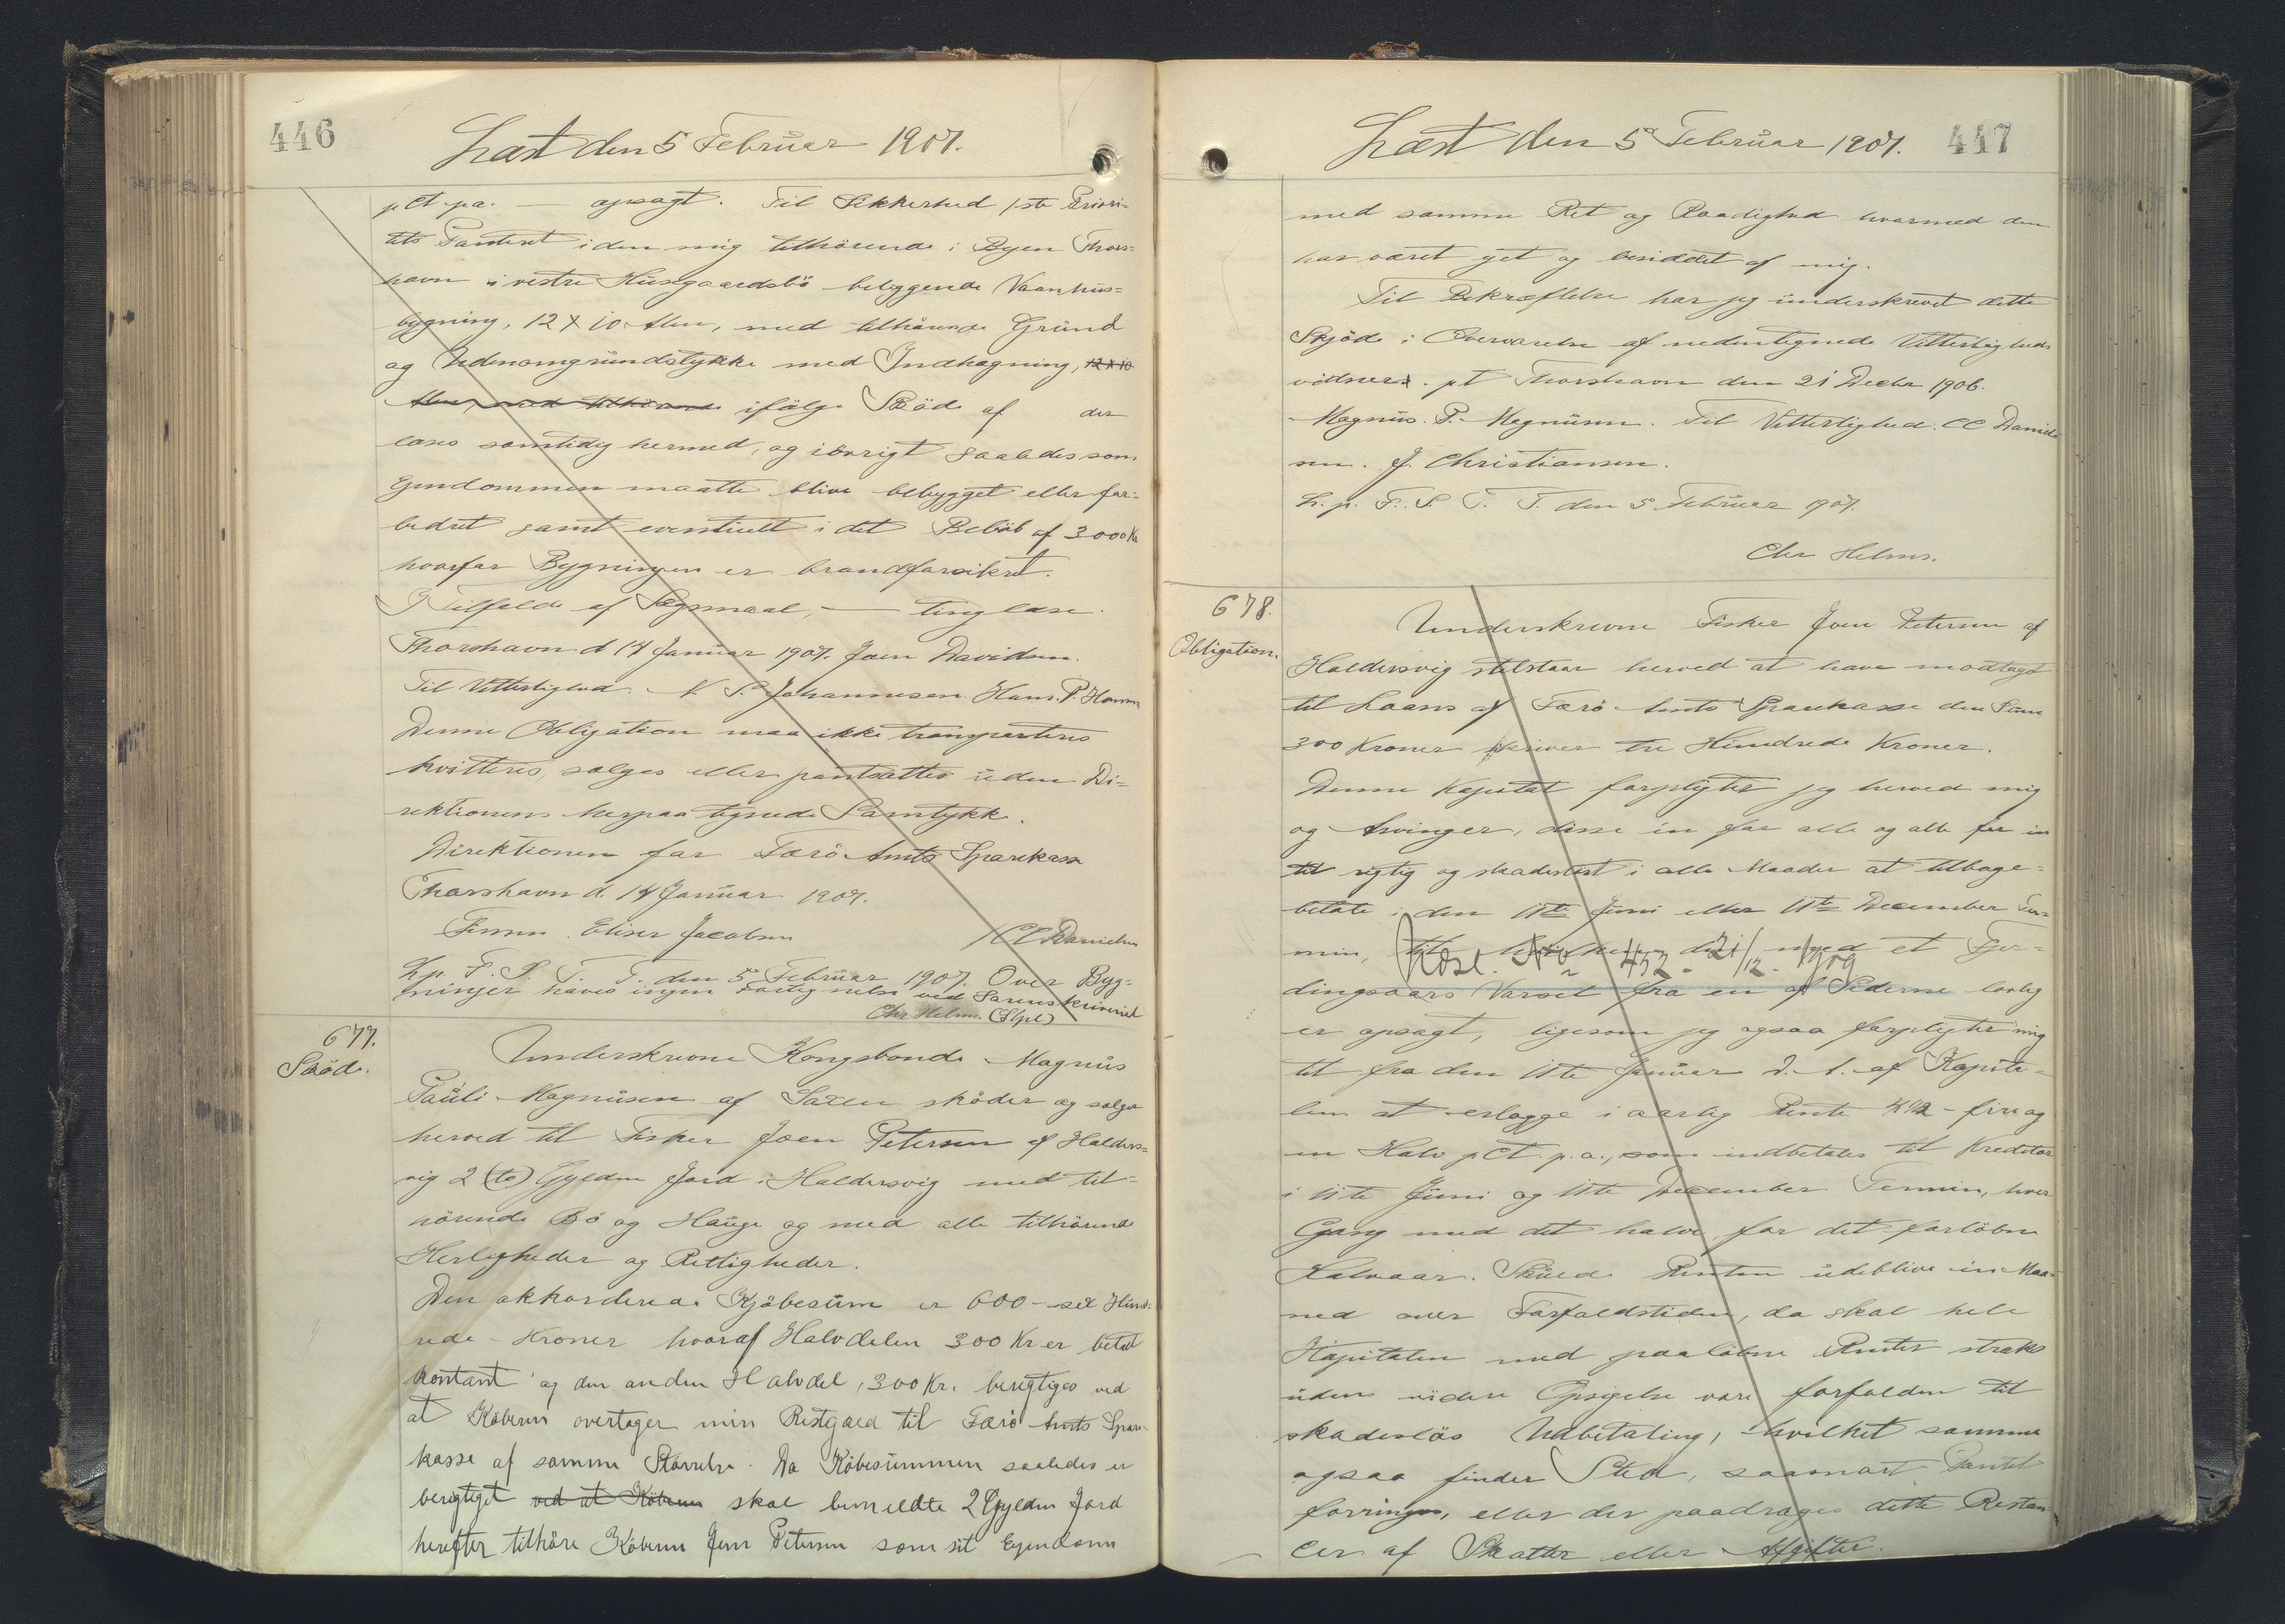 446
Læst den 5 Februar 1907.
pCt. p.a. — opsagt. Til Sikkerhed 1ste Priori-
tets Panteret i den mig tilhörende i Byen Thors-
havn i vestre Husgaardsbö beliggende Vaanhus-
bygning, 12 X 10 Alen, med tilhörende Grund
og Udenomgrundstykke med Indhegning, 12 X 10
Alen, med tilhörende ifölge Sköde af der
læses samtidig hermed, og iövrigt saaledes som
Ejendommen maatte blive bebygget eller for-
bedret samt eventuelt i det Belöb af 3000 Kr
hvorfor Bygningen er brandforsikret.
I Tilfælde af Sögsmaal, — tinglæse.
Thorshavn d 14 Januar 1907. Joen Davidsen.
Til Vitterlighed. N. P. Johannesen. Hans. P.
Denne Obligation maa ikke transporteres
kvitteres, sælges eller pantsættes uden Di-
rektionens herpaa tegnede Samtykke.
Direktionen for Færö Amts Sparekasse
Thorshavn d. 14 Januar 1907.
Eliser Jacobsen CC Danielsen
L. p. F. S. T. T. den 5 Februar 1907. Over Byg-
ninger haves ingen Fortegnelse ved Sorenskriveriet
Chr Helms. (Slpl)
677.
Sköde.
Underskrevne Kongsbonde Magnus
Pauli Magnusen af Saxen sköder og sælger
herved til Fisker Joen Petersen af Halders-
vig 2 (to) Gylden Jord i Haldersvig med til-
hörende Bö og Hauge og med alle tilhörende
Herligheder og Rettigheder.
Den akkorderede Kjöbesum er 600 - sex Hund-
rede - Kroner hvoraf Halvdelen 300 Kr er betalt
kontant og den anden Halvdel, 300 Kr. berigtiges ved
at Köberen overtager min Restgæld til Færö Amts Spare-
kasse af samme Störrelse. Da Köbesummen saaledes er
berigtiget ved at Köberen skal bemeldte 2 Gylden Jord
herefter tilhöre Köberen Joen Petersen som sit Ejendom
Læst den 5 Februar 1907.
447
med samme Ret og Raadighed hvormed den
har været ejet og besiddet af mig.
Til Bekræftelse har jeg underskrevet dette
Skjöde i Overværelse af nedentegnede Vitterligheds
vidner. pt Thorshavn den 21 Decbr 1906.
Magnus. P. Magnusen. Til Vitterlighed. CC Daniel-
sen. J. Christiansen.
L. p. F. S. T. T. den 5 Februar 1907.
Chr Helms.
678.
Obligation.
Underskrevne Fisker Joen Petersen af
Haldersvig tilstaar herved at have modtaget
til Laans af Færö Amts Sparekasse den Sum
300 Kroner skriver tre Hundrede Kroner.
Denne Kapital forpligter jeg herved mig
og Arvinger, disse en for alle og alle for en
til rigtig og skadeslöst i alle Maader at tilbage-
betale i den 11te Juni eller 11te December Ter-
min, til hvilken det med et Fjer-
Kasl. No 452. 21/12. 1909
dingsaars Varsel fra en af Siderne lovlig
er opsagt, ligesom jeg ogsaa forpligter mig
til fra den 11te Januar d. A. af Kapita-
len at erlægge i aarlig Rente 4 1/2 - fire og
en Halv pCt. p. a., som indbetales til Kreditor
i 11te Juni og 11te December Termin, hver
Gang med det halve for det forlöbne
Halvaar. Skulde Renten udeblive en Maa-
ned over Forfaldstiden, da skal hele
Kapitalen med paalöbne Renter straks
uden videre Opsigelse være forfalden til
skadeslös Udbetaling, hvilket samme
ogsaa finder Sted, saasnart Pantet
forringes, eller der paadrages dette Restan-
cer af Skatter eller Afgifter.